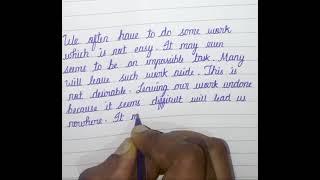 We often have to do some work
which is not easy. It may even
seem to be an impossible task. Many
will leave such work aside. This is
not desirable. Leaving our work undone
because it seems difficult will lead us
nowhere. It m